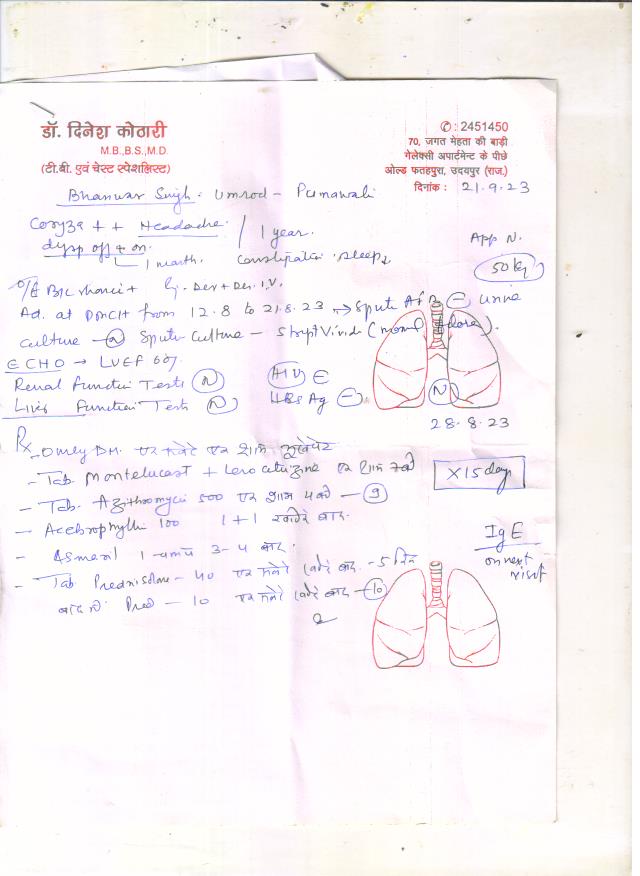 डॉ. दिनेश कोठारी
M.B.,B.S.,M.D.
(टी.बी. एवं चेस्ट स्पेशलिस्ट)
✆: 2451450
70, जगत मेहता की बाड़ी
गेलेक्सी अपार्टमेन्ट के पीछे
ओल्ड फतहपुरा, उदयपुर (राज.)
दिनांक : 21.9.23
Bhanwar Singh - Umrod -
Coryza + + Headache / 1 year.
App N.
1 month. constipation. sleep
50 kg
O/E B/L rhonci +
Ad. at from 12.8 to 21.8.23 → Sputum AFB - urine
culture - N Sputum culture - Strept Viridi (normal flora).
ECHO → LVEF 60%
Renal Function Tests N HIV
Liver Function Tests N HBs Ag - N
28.8.23
Rx
- Tab Montelucast + Levocetrizine एक शाम
X 15 days
- Tab. Azithromycin 500 एक शाम 4 बजे - 9
- Acebrophyllin 100 1+1 खाने के बाद.
- 1 - चम्मच 3-4 बार.
IgE
on next
visit
- Tab Prednisolone - 40 एक सवेरे खाने के बाद - 5 दिन
बाद में Pred - 10 एक सवेरे खाने के बाद - 10